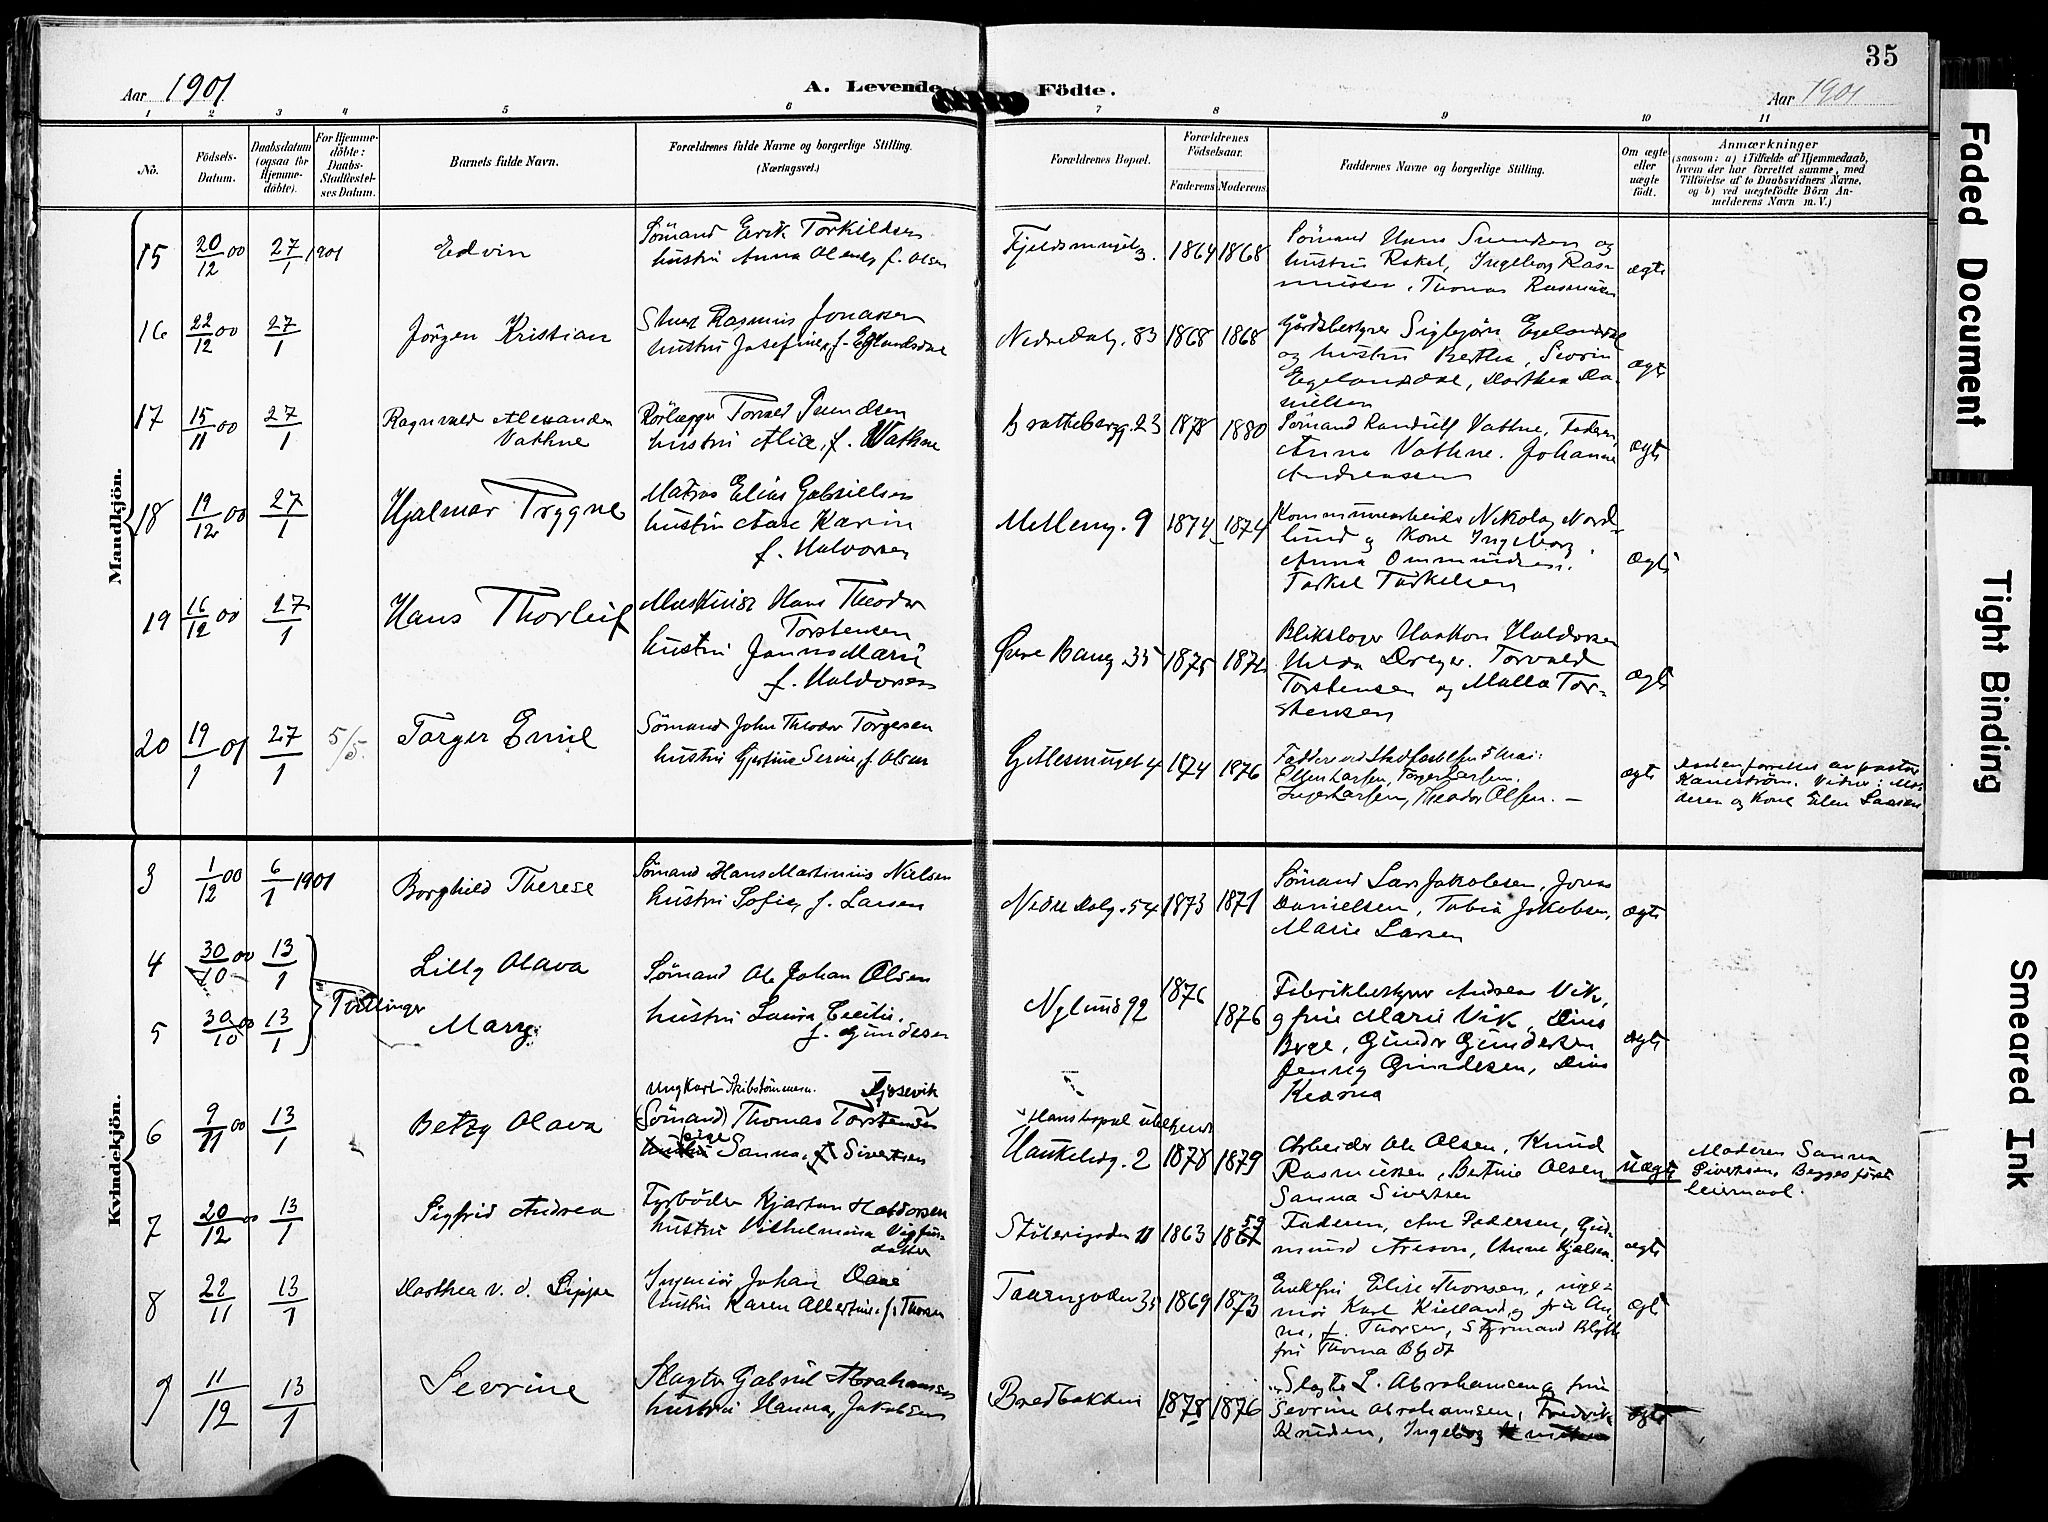 35
Aar 1901
A. Levende Födte.
Aar 1901
1 2 3 4 5 6 7 8 9 10 11
No.
Födsels-
Datum.
Daabsdatum
(ogsaa for
Hjemme-
döbte).
For Hjemme-
döbte:
Daabs-
Stadfæstel-
ses Datum.
Barnets fulde Navn.
Forældrenes fulde Navne og borgerlige Stilling.
(Næringsvei.)
Forældrenes Bopæl.
Forældrenes
Födselsaar.
Faderens Moderens
Faddernes Navne og borgerlige Stilling.
Om ægte
eller
uægte
födt.
Anmærkninger
(saasom: a) i Tilfælde af Hjemmedaab,
hvem der har forrettet samme, med
Tilföielse af to Daabsvidners Navne,
og b) ved uegtefödte Börn An-
melderens Navn m. V.)
Mandkjön.
15 20/12 00 27/1 1901 Edvin
Sömand Erik Torkildsen
hustru Anna f. Olsen
1864 1868
Sömand Hans Svendsen og
hustru Rakel, Ingeborg Ras-
mussen, Thomas Rasmussen
ægte
16 22/12 00 27/1 Jörgen Kristian
Rasmus Jonassen
hustru Josefine, f. Egelandsdal
Nedre Dalg. 83 1868 1868
Gårdsbestyrer Sigbjörn Egelandsdal
og hustru Berthe, Sevrin
Egelandsdal, Dorthea Da-
nielsen
ægte
17 15/11 00 27/1 Ragnvald Alexander
Vathne
Rörlægger Torvald Svendsen
hustru Alice, f. Wathne
Brattebergg. 23 1878 1880
Sömand Randulf Vathne, Faderen,
Anna Vathne. Johanne
Andreassen
ægte
18 19/12 00 27/1 Hjalmar Trygve
Matros Elias Gabrielsen
hustru Aase Karin
f. Halvorsen
Mellemg. 9 1874 1874
Kommunearbeider Nikolay Nord-
lund og Kone Ingeborg,
Anna Ommundsen.
Torkel Torkelsen
Ægte
19 16/12 00 27/1 Hans Thorleif
Maskinist Hans Theodor
Torstensen
hustru Marie
f. Haldorsen
Øvre Bang. 35 1875 1872
Blikslager Haakon Haldorsen
Hilda Dreyer. Torvald
Torstensen og Malla Tor-
stensen
Ægte
20 19/1 01 27/1 5/5. Torger Emil
Sömand John Theodor Torgersen
hustru Gjertine Serine, f. Olsen
4 1874 1876
Faddere ved Stadfæstelsen 5 Mai:
Ellen Larsen, Torger Larsen.
Inger Larsen, Theodor Olsen. –
ægte
Daaben forrettet av pastor
Vidner: Mo-
deren og Kone Ellen Larsen
Kvindekjön.
3 1/12 00 6/1 1901 Borghild Therese
Sömand Hans Martinius Nielsen
hustru Sofie, f. Larsen
Nedre Dalg. 54 1873 1871
Sömand Lars Jakobsen, Jonas
Danielsen, Tobia Jakobsen,
Marie Larsen
ægte
4 30/10 00 13/1 Lilly Olava
Tvillinger
5 30/10 00 13/1 Marry
Sömand Ole Johan Olsen
hustru Laura Cecilie,
f. Gundersen
Nylund 92 1876 1876
Fabrikbestyrer Andreas Vik,
og frue Marie Vik, Dina
Berge, Gunder Gundersen
Jenny Gundersen, Dina
ægte
6 9/11 00 13/1 Betzy Olava
Ungkarl
(Sömand) Thomas Torstensen
hustru pige Sanna, f. Sivertsen
Hans bopæl ubekjendt
Haukelidg. 2 1878 1879
Arbeider Ole Olsen, Knud
Rasmussen, Bertine Olsen
Sanna Sivertsen
Uægte
Moderen Sanna
Sivertsen, Begges förste
leiermaal.
7 20/12 00 13/1 Sigfrid Andrea
Fyrböder Kjartan Haldorsen
hustru Vilhelmina Vigfus-
datter
11 1863 1867 59
Faderen, Are Pedersen, Gud-
mund Areson, Anne
ægte
8 22/11 13/1 Dorthea v. d. Lippe
Ingeniör Johan Daae
hustru Karen Albertine, f. Thorsen
35 1869 1873
Enkefru Elise Thorsen, inge-
niör Karl Kielland og frue An-
na, f. Thorsen, Styrmand Blydt
fru Thoma Blydt
ægte
9 11/12 13/1 Sevrine
Slagter Gabriel Abrahamsen
hustru Hanna, Jakobsen
Bredbakken 1878 1876
Slagter L. Abrahamsen og frue
Sevrine Abrahamsen, Fredrik
Knudsen, Ingeborg Knudsen
ægte
Faded Document
Tight Binding
Smeared Ink